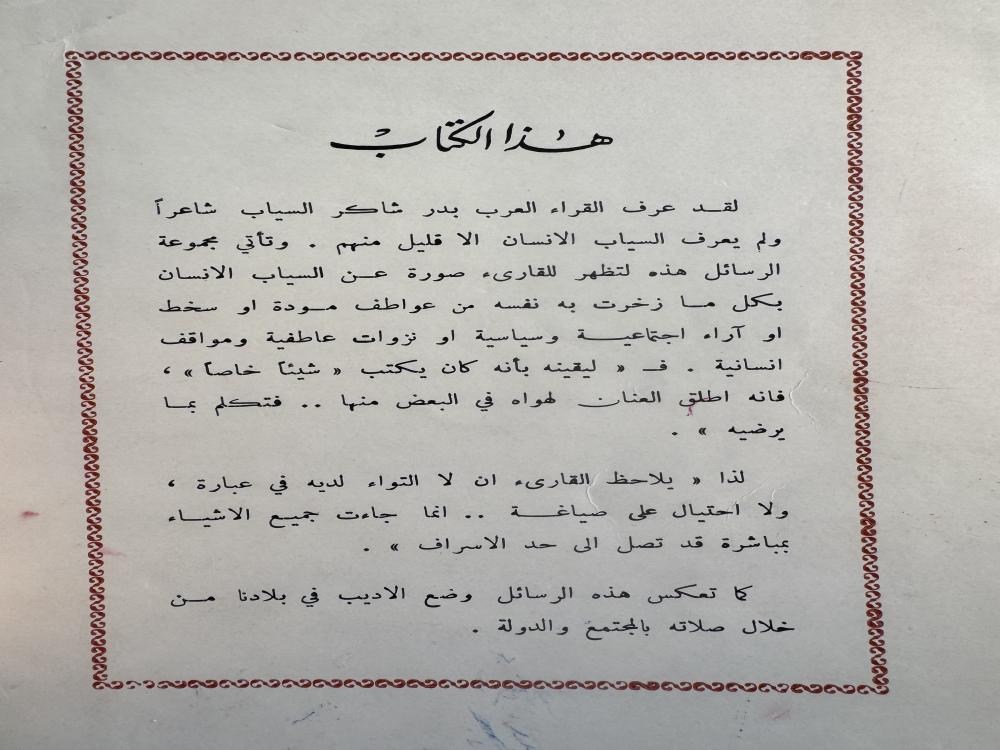 هذا الكتاب
لقد عرف القراء العرب بدر شاكر السياب شاعراً
ولم يعرف السياب الانسان الا قليل منهم . وتأتي مجموعة
الرسائل هذه لتظهر للقارىء صورة عن السياب الانسان
بكل ما زخرت به نفسه من عواطف مودة او سخط
او آراء اجتماعية وسياسية او نزوات عاطفية ومواقف
انسانية . فـ « ليقينه بأنه كان يكتب « شيئاً خاصاً » ،
فانه اطلق العنان لهواه في البعض منها .. فتكلم بما
يرضيه » .
لذا « يلاحظ القارىء ان لا التواء لديه في عبارة ،
ولا احتيال على صياغة .. انما جاءت جميع الاشياء
بمباشرة قد تصل الى حد الاسراف » .
كما تعكس هذه الرسائل وضع الاديب في بلادنا من
خلال صلاته بالمجتمع والدولة .